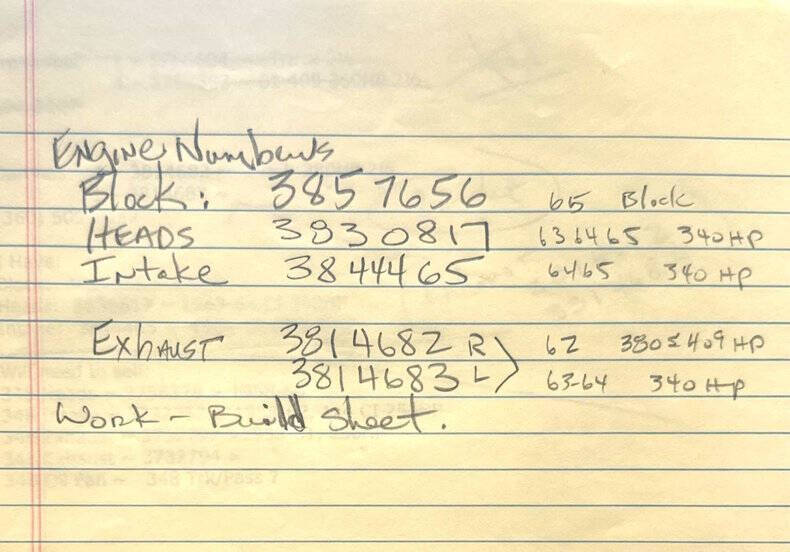 Engine Numbers
Block: 3857656 65 Block
HEADS 3830817 636465 340 HP
Intake 3844465 6465 340 HP
Exhaust 3814682 R 62 380 & 409 HP
3814683 L 63-64 340 HP
Work - Build Sheet.